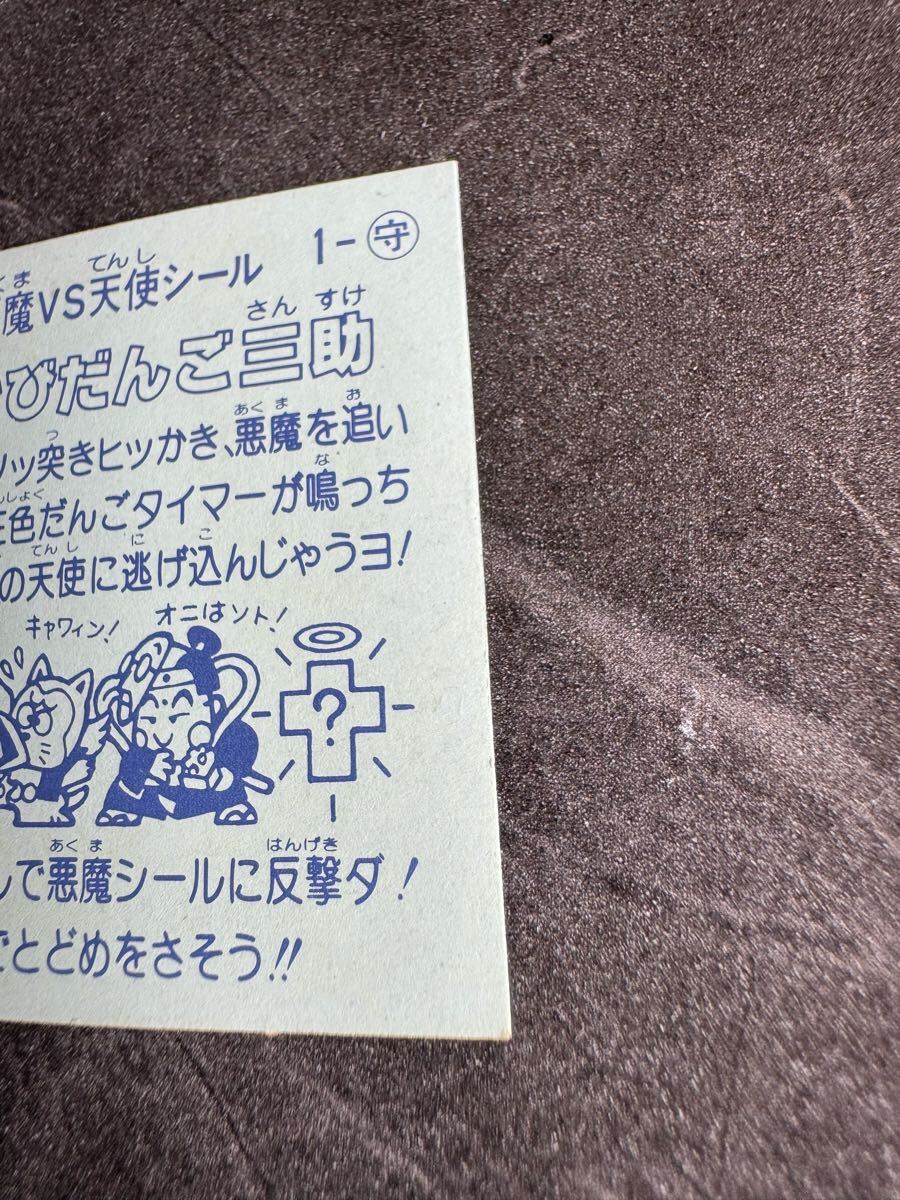 魔VS天使シール 1-守
びだんご三助
ッ突きヒッかき、悪魔を追い
色だんごタイマーが鳴っち
の天使に逃げ込んじゃうヨ!
キャワィン! オニはソト!
?
で悪魔シールに反撃ダ!
とどめをさそう!!